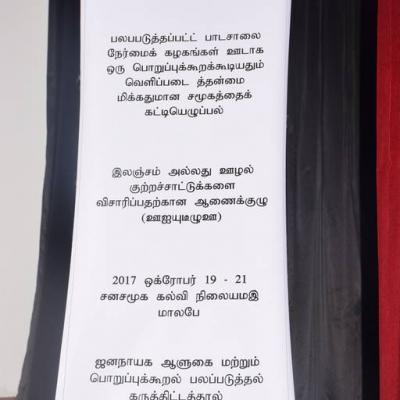 பலபபடுத்தப்பட்ட் பாடசாலை
நேர்மைக் கழகங்கள் ஊடாக
ஒரு பொறுப்புக்கூறக்கூடியதும்
வெளிப்படை த்தன்மை
மிக்கதுமான சமூகத்தைக்
கட்டியெழுப்பல்
இலஞ்சம் அல்லது ஊழல்
குற்றச்சாட்டுக்களை
விசாரிப்பதற்கான ஆணைக்குழு
(ஊஐயுடீழுஊ)
2017 ஒக்ரோபர் 19 - 21
சனசமூக கல்வி நிலையமஇ
மாலபே
ஜனநாயக ஆளுகை மற்றும்
பொறுப்புக்கூறல் பலப்படுத்தல்
கருத்திட்டத்தால்